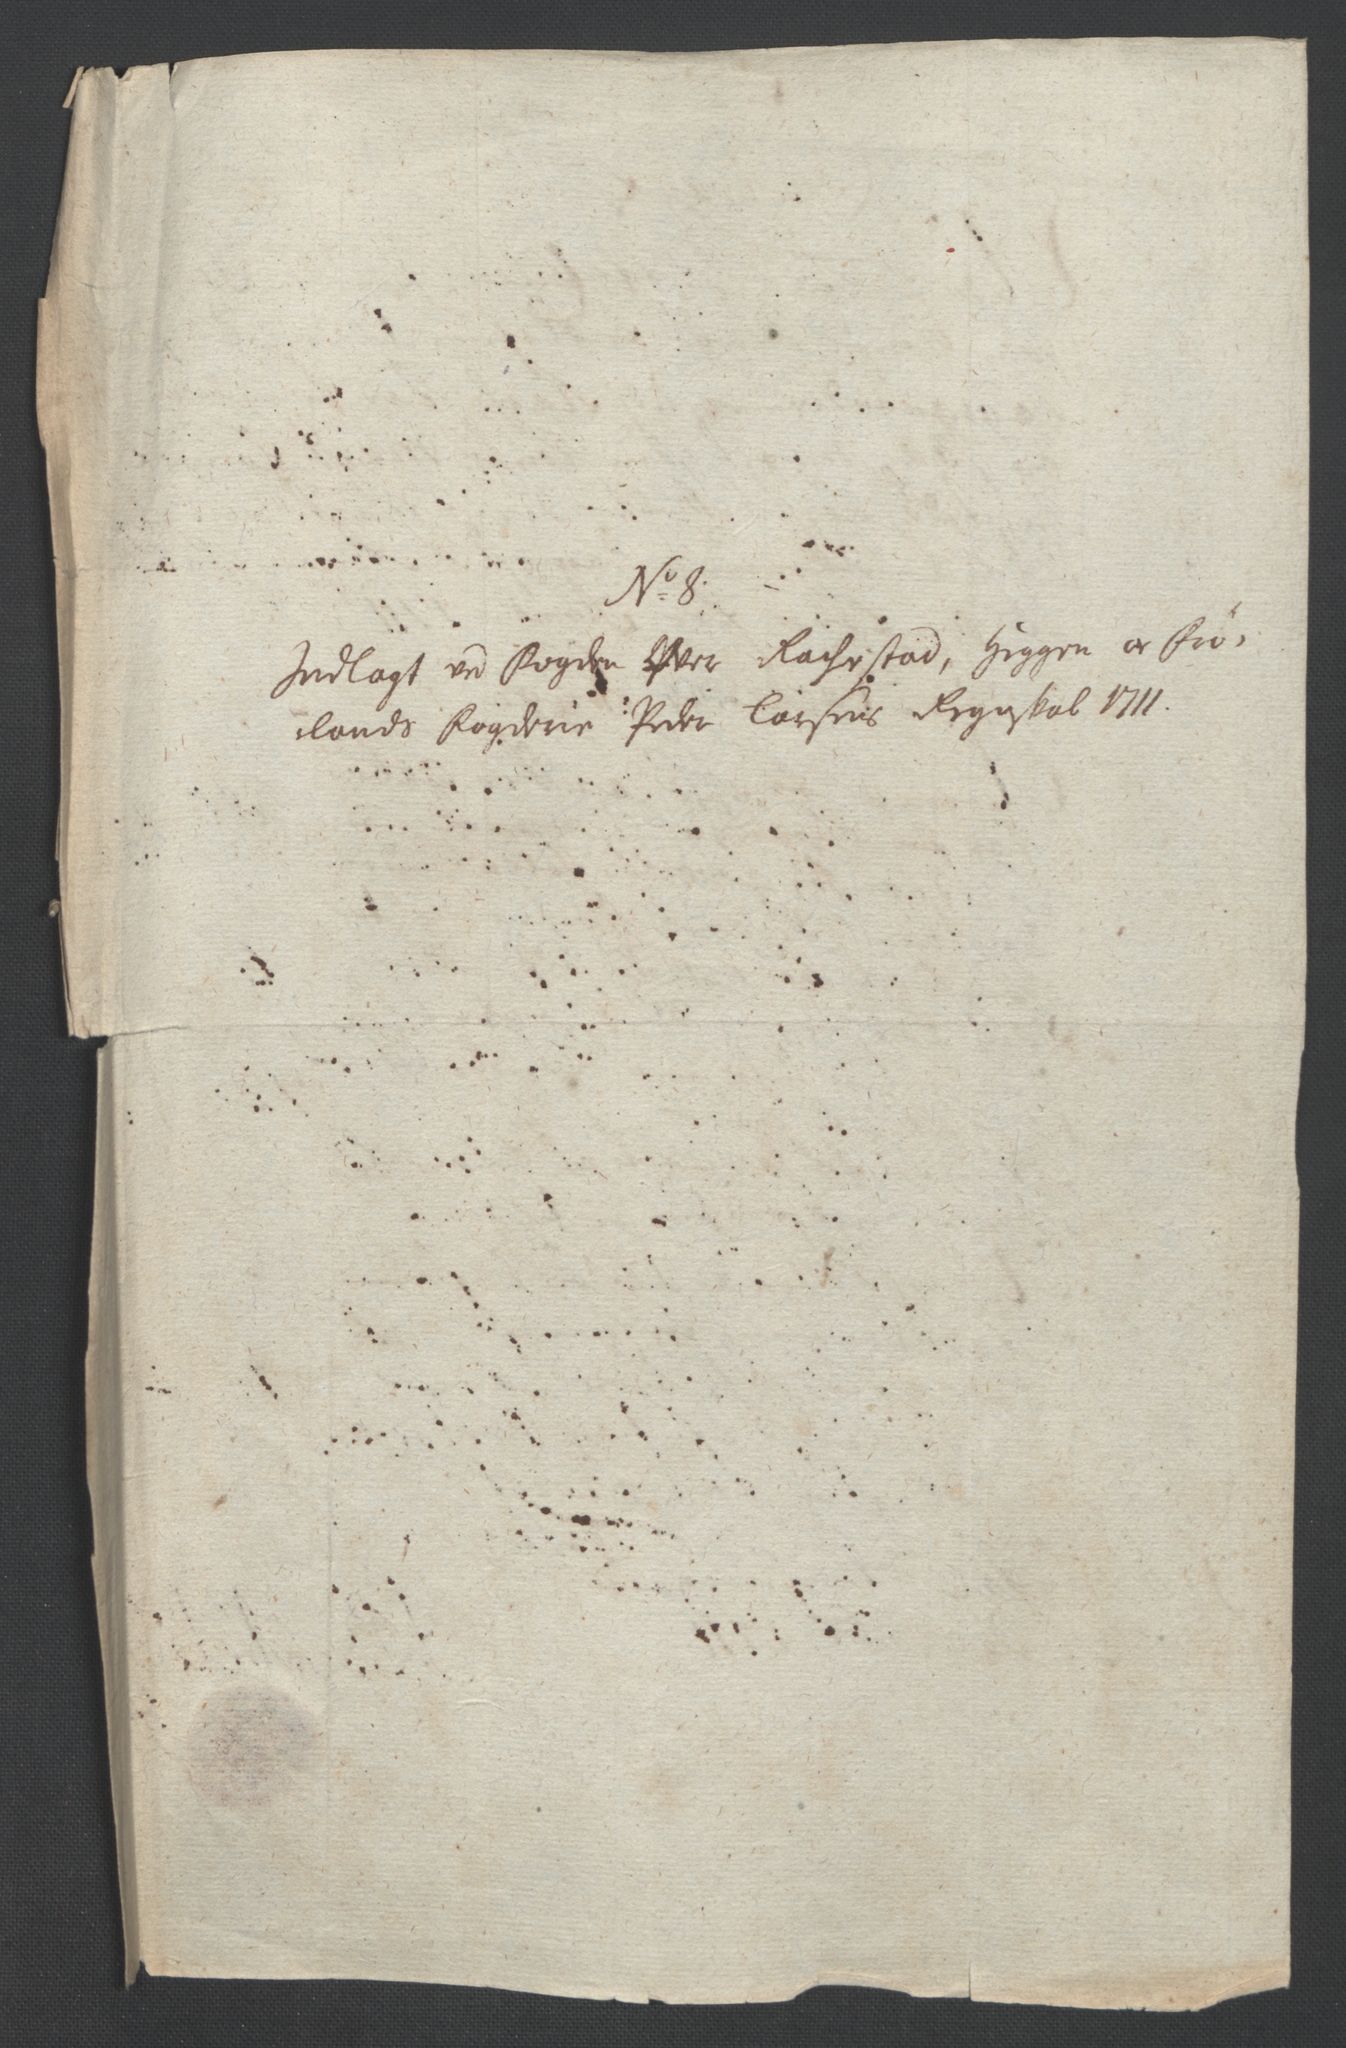 No 8.
Indlagt ved Fogden over Rachestad, Heggen oc Frö-
lands Fogderie Peder Larsens Regnskab 1711.